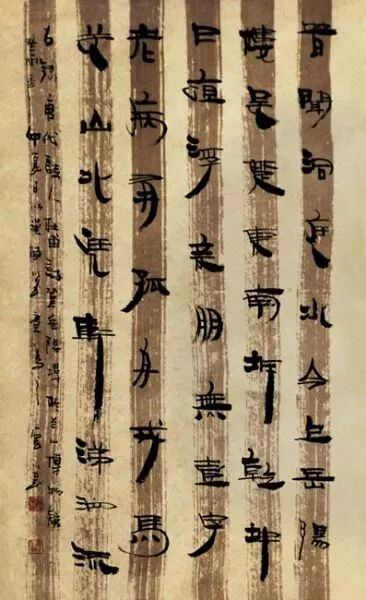 昔聞洞庭水今上岳陽
樓吳楚東南坼乾坤
日夜浮亲朋無壹字
老病有孤舟戎馬
关山北凭軒涕泗流
右録唐代詩人杜甫詩登岳陽樓